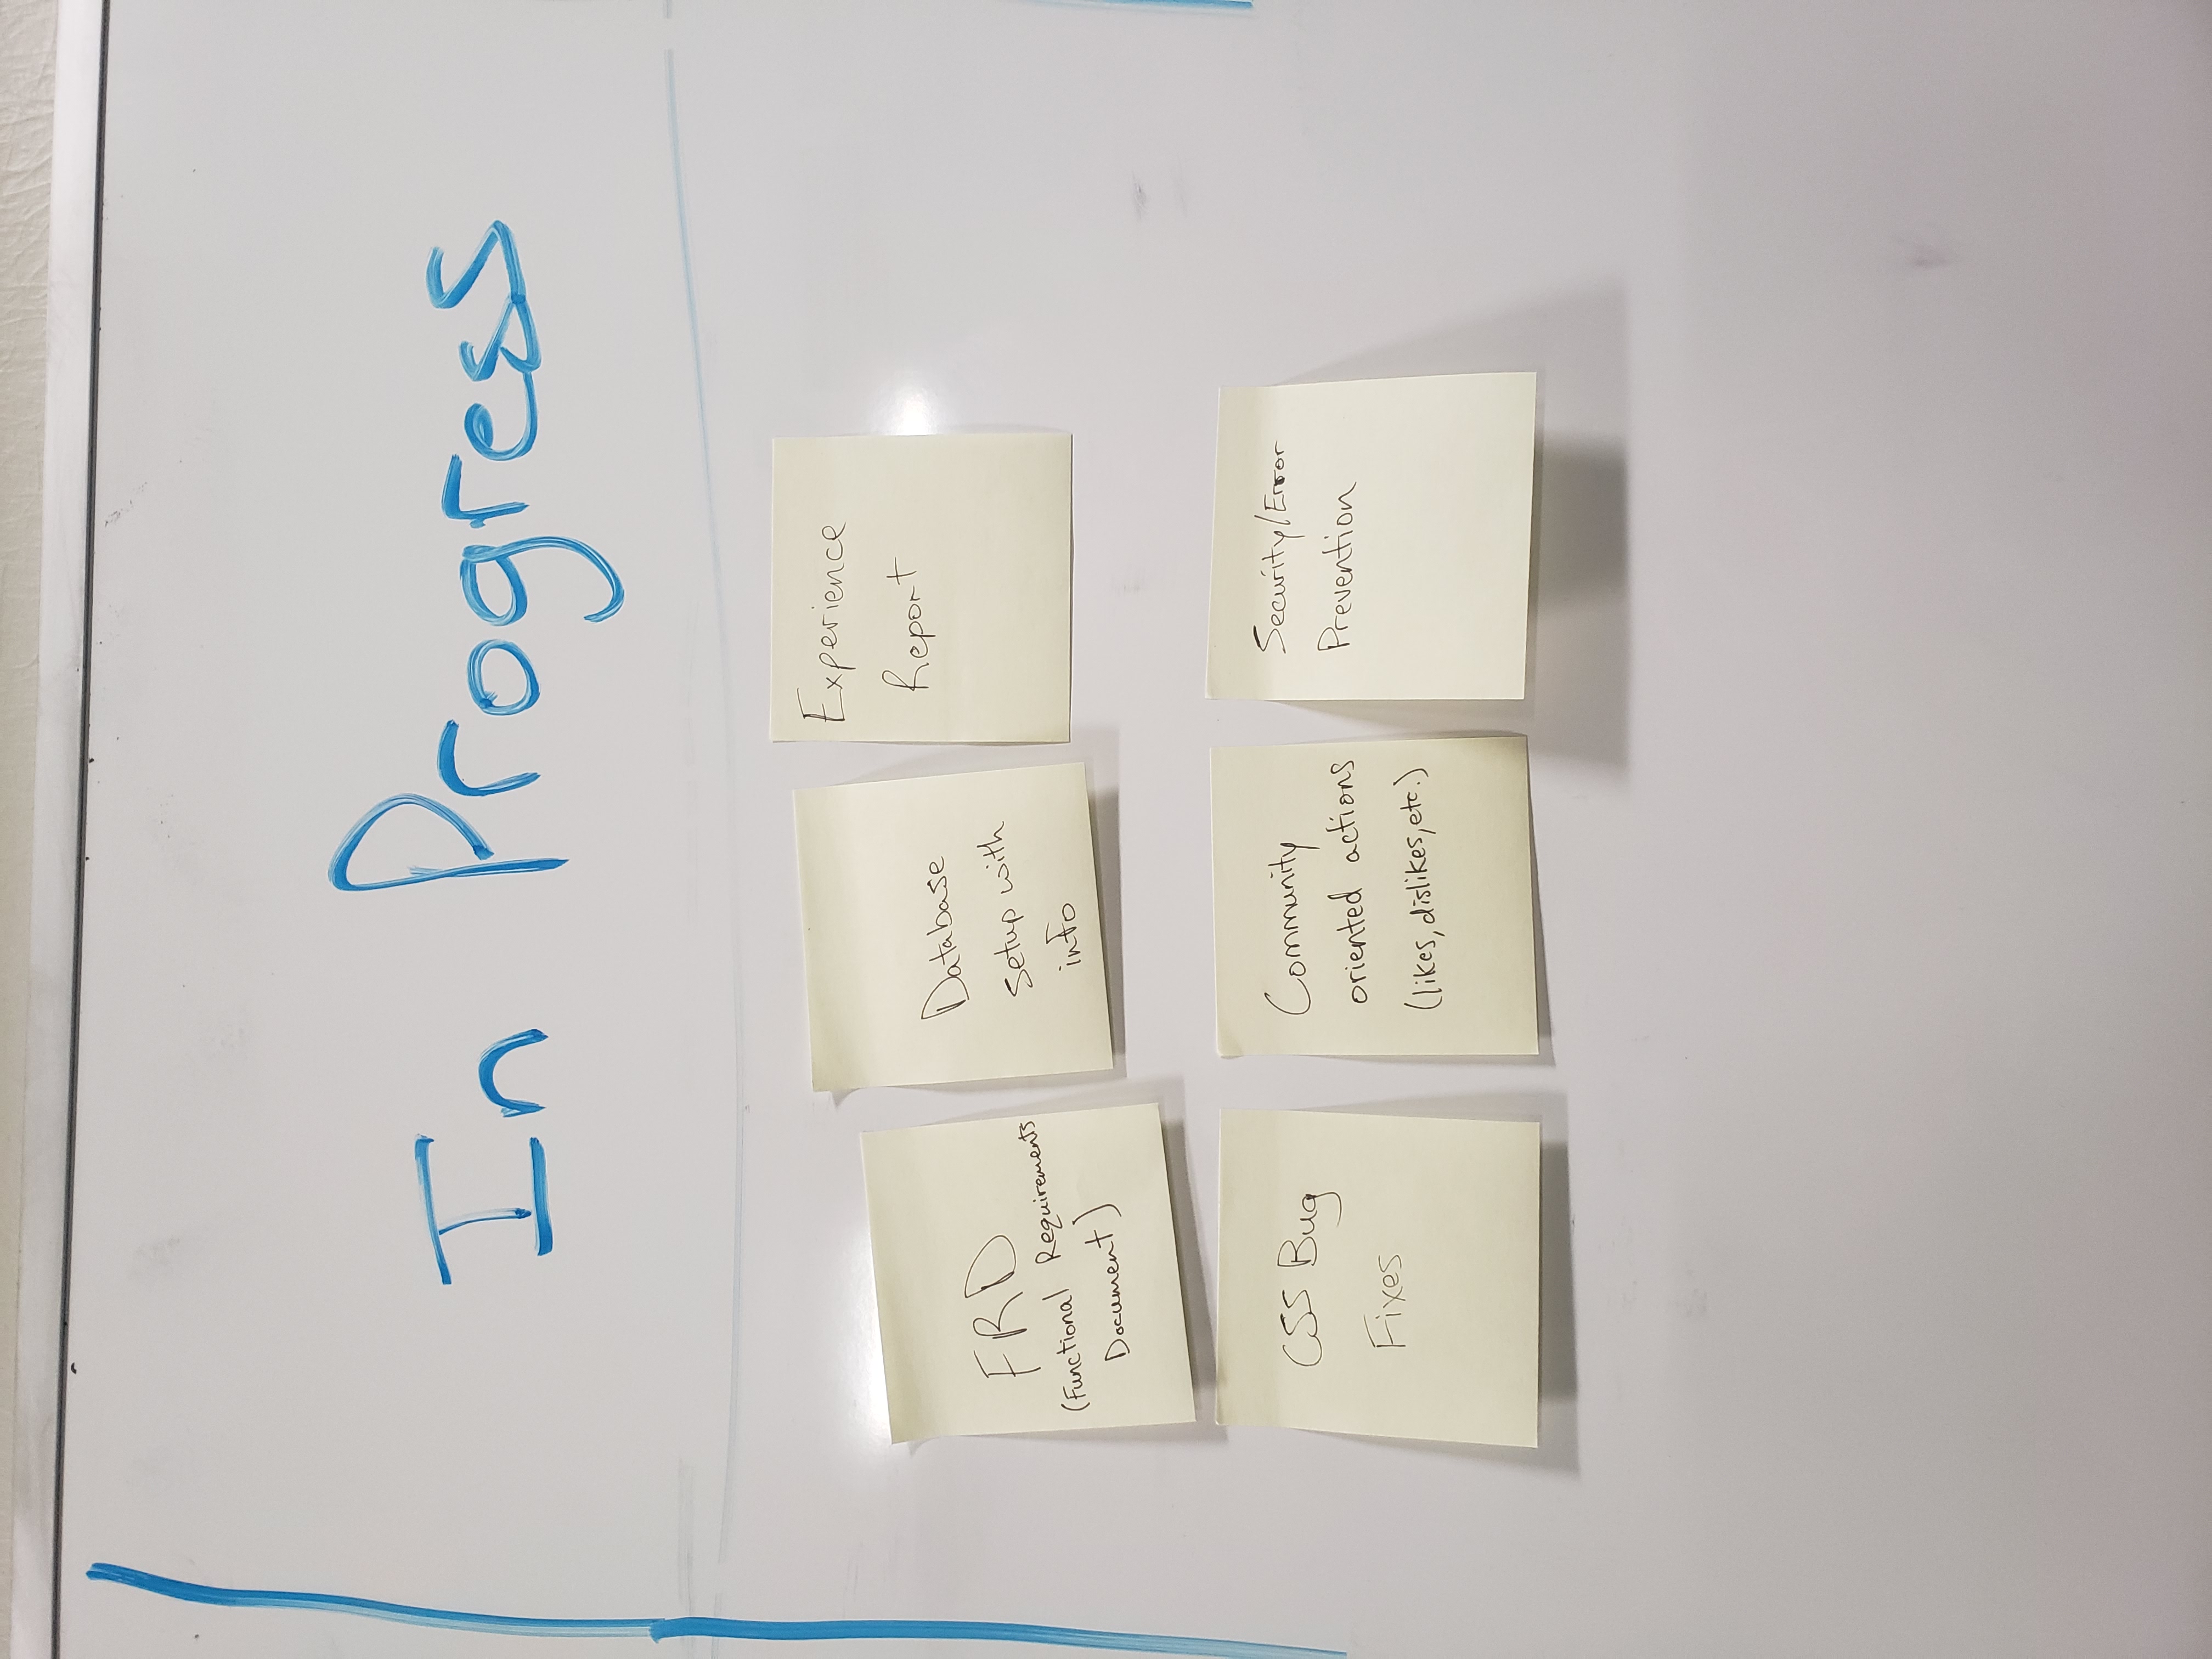 In Progress
FRD
(Functional Requirements
Document)
Database
setup with
info
Experience
Report
CSS Bug
Fixes
Community
oriented actions
(likes, dislikes, etc.)
Security/Error
Prevention